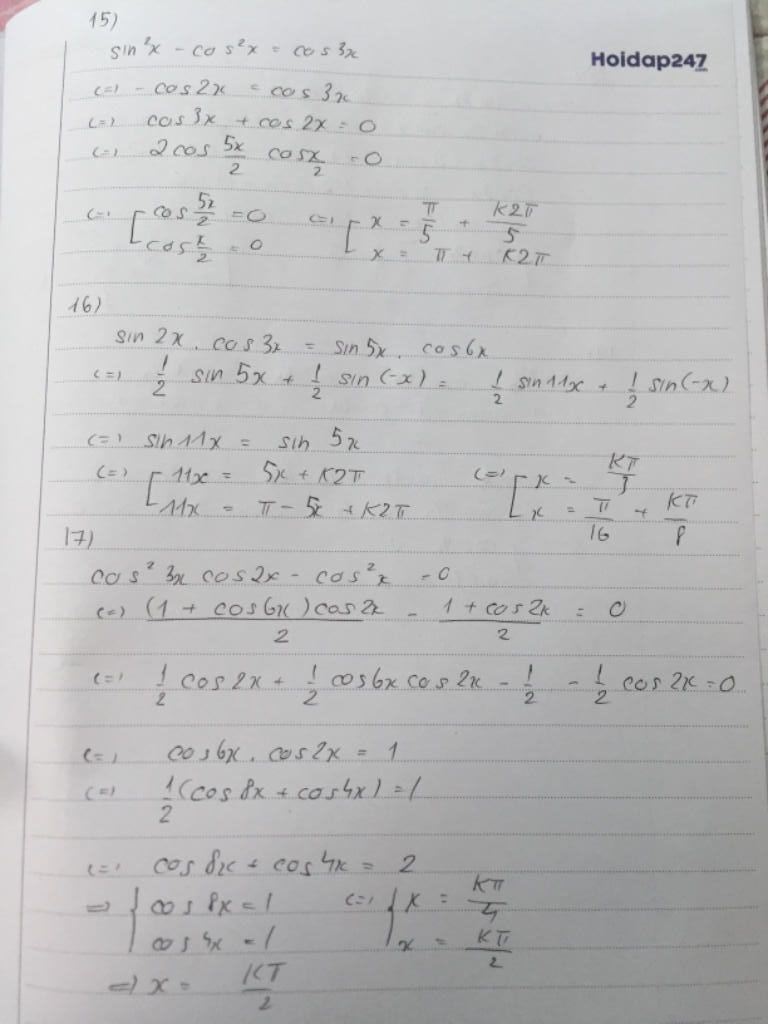 15)
sin²x - cos²x = cos3x
Hoidap247
.com
<=> - cos2x = cos3x
<=> cos3x + cos2x = 0
<=> 2cos 5x/2 cos x/2 = 0
<=> [ cos 5x/2 = 0 <=> [ x = π/5 + K2π/5
cos x/2 = 0 x = π + K2π
16)
sin 2x . cos3x = sin5x . cos6x
<=> 1/2 sin 5x + 1/2 sin(-x) = 1/2 sin11x + 1/2 sin(-x)
<=> sin11x = sin 5x
<=> [ 11x = 5x + K2π <=> [ x = Kπ/3
11x = π - 5x + K2π x = π/16 + Kπ/8
17)
cos² 3x cos2x - cos²x = 0
<=> (1 + cos6x)cos2x / 2 - 1 + cos2x / 2 = 0
<=> 1/2 cos2x + 1/2 cos6x cos2x - 1/2 - 1/2 cos2x = 0
<=> cos6x . cos2x = 1
<=> 1/2 (cos8x + cos4x) = 1
<=> cos8x + cos4x = 2
=> { cos 8x = 1 <=> { x = Kπ/4
cos 4x = 1 x = Kπ/2
=> x = Kπ/2